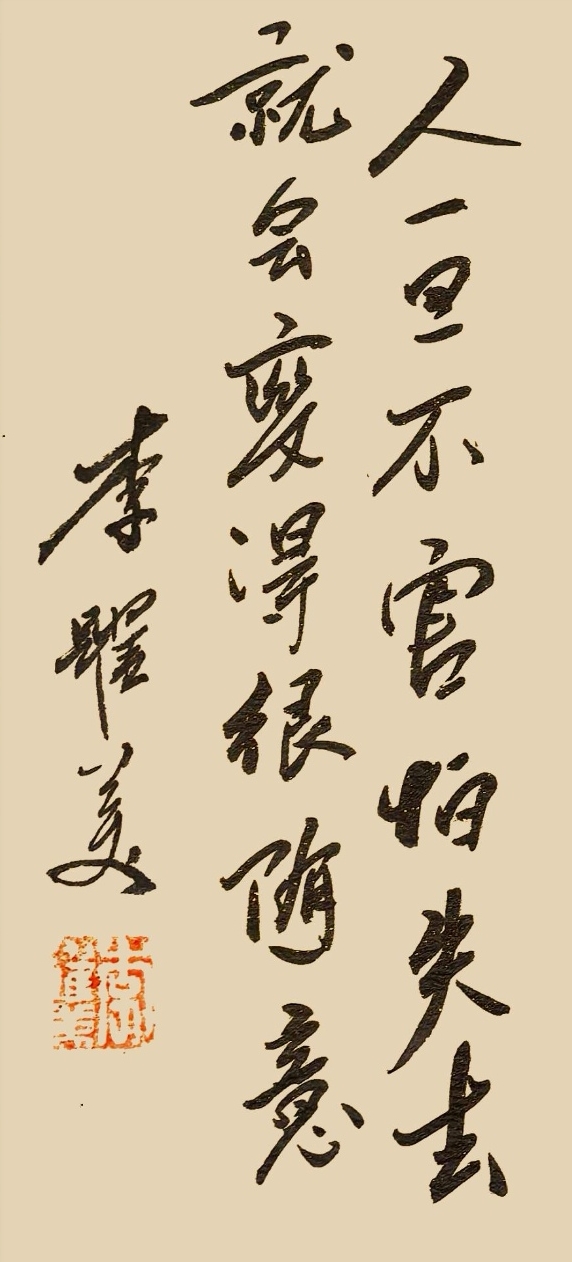 人一旦不害怕失去
就会变得很随意
李美